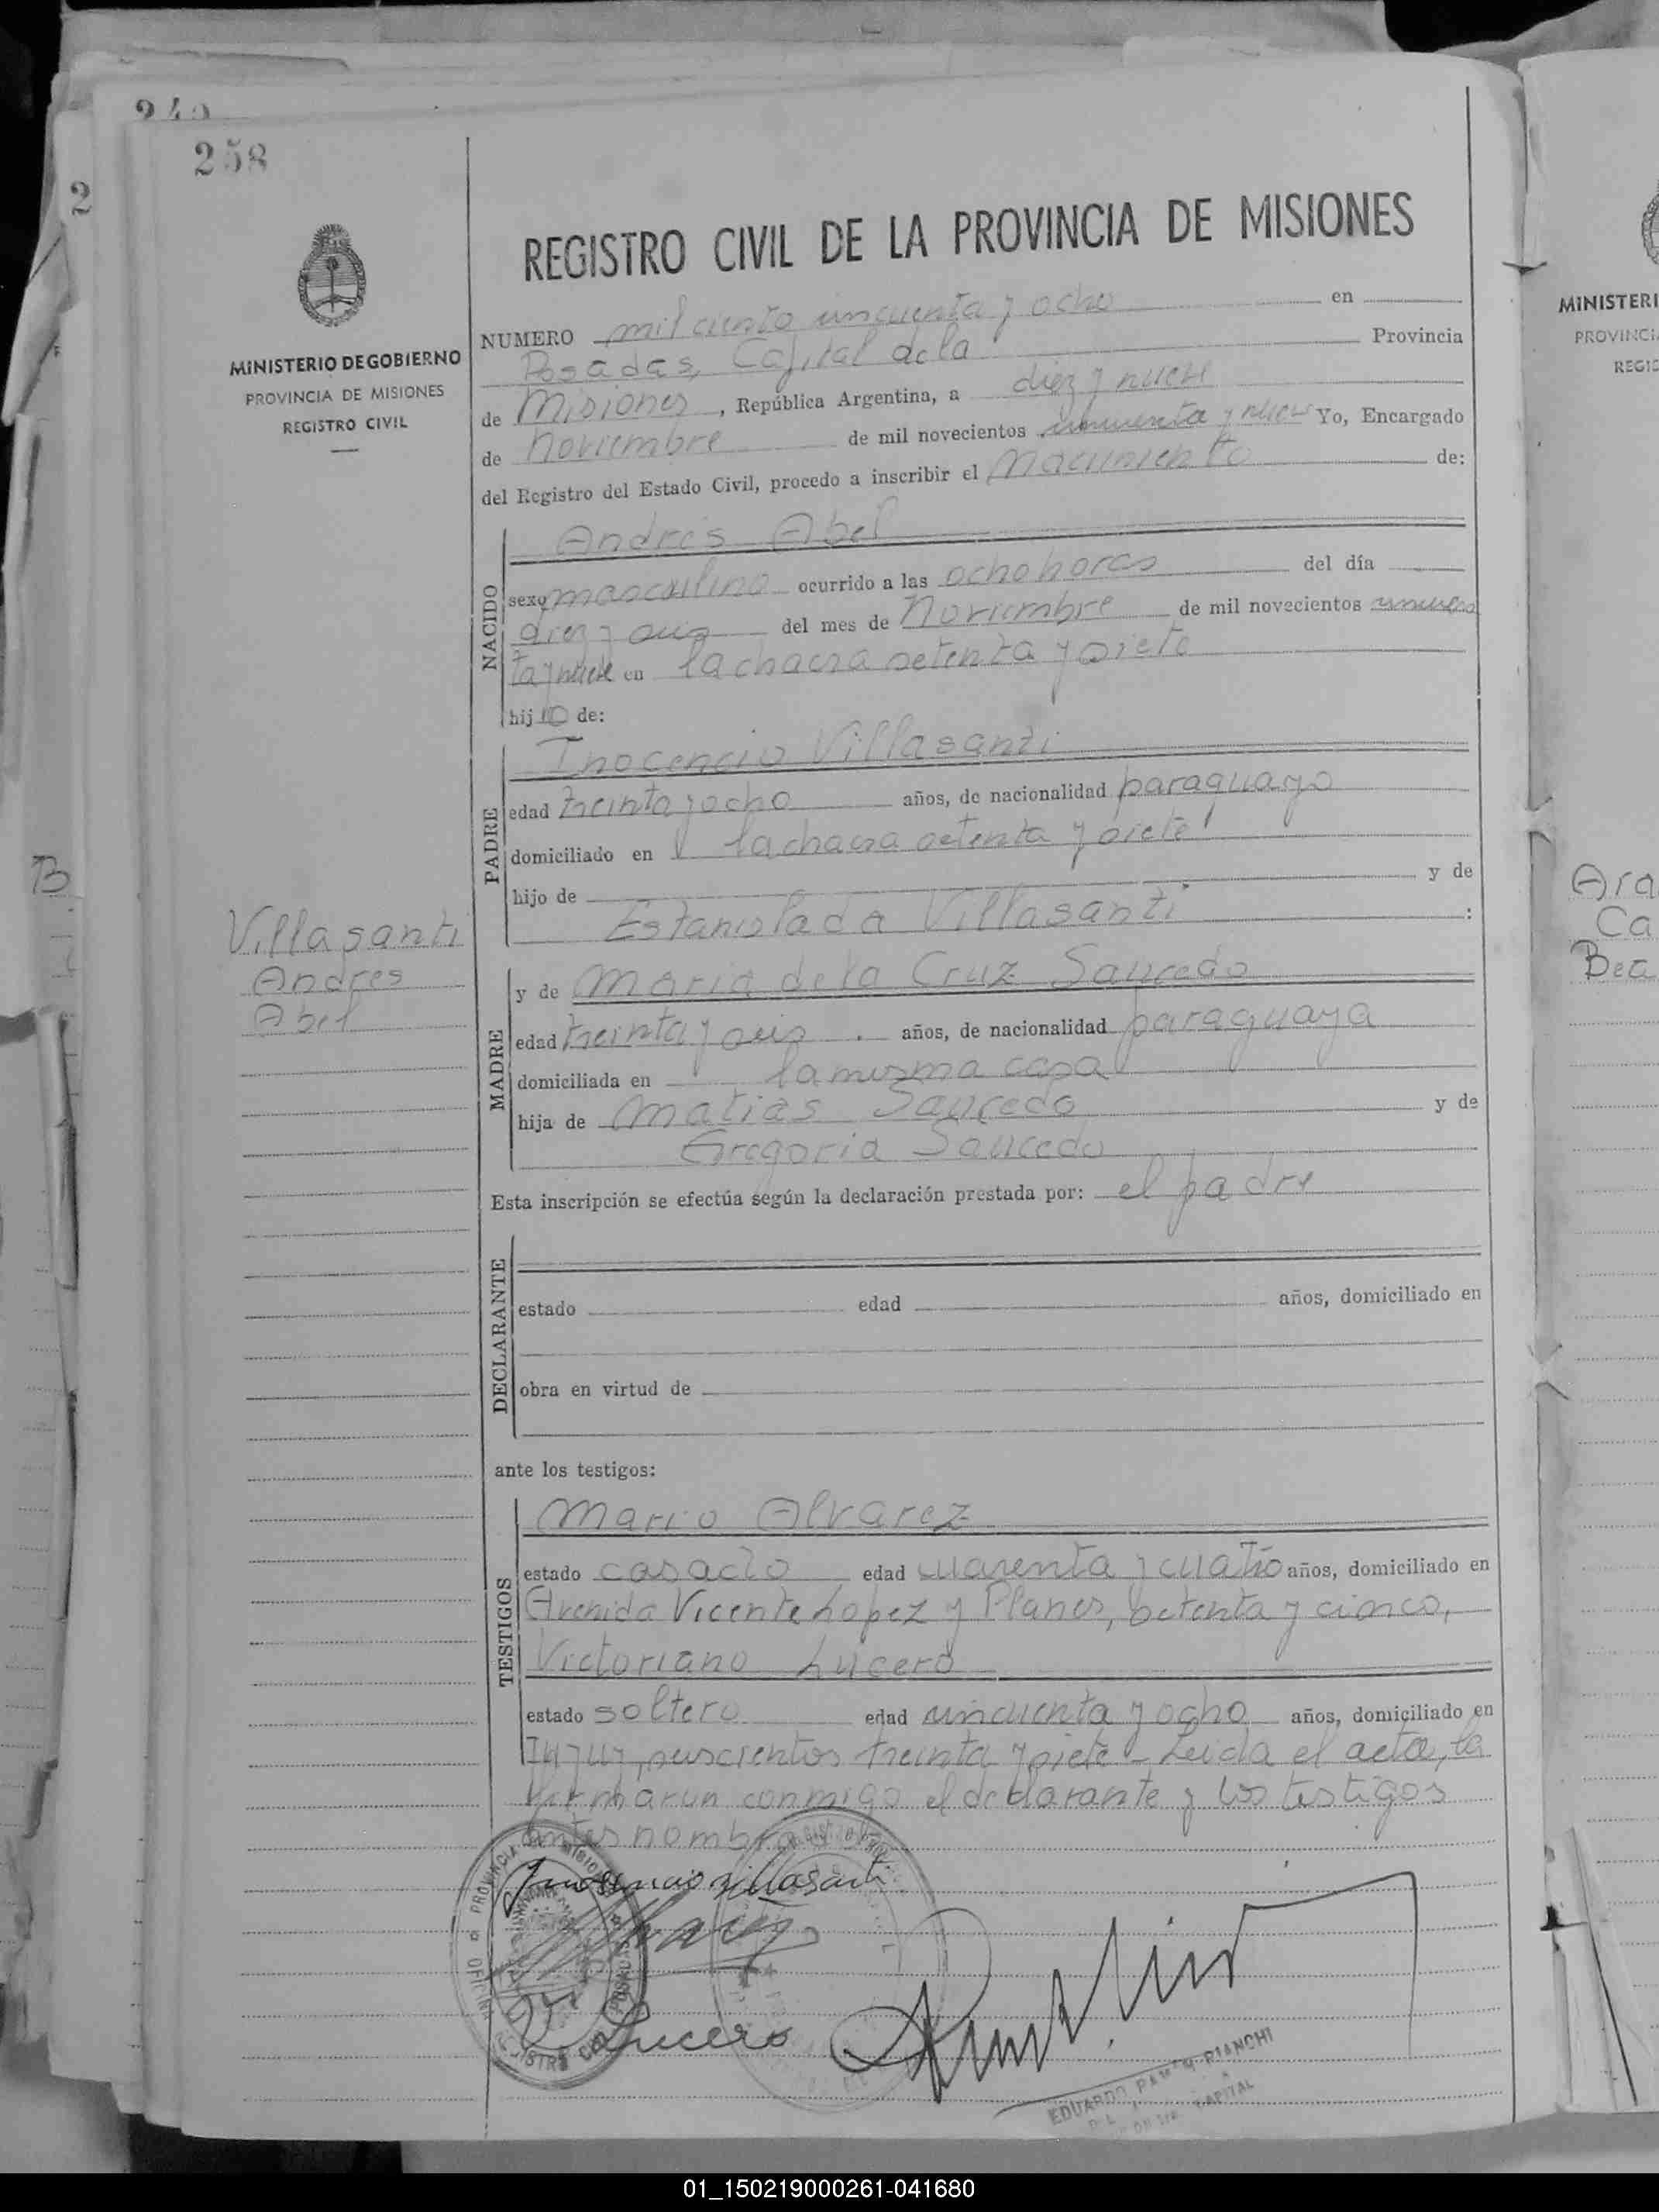 258
MINISTERIO DE GOBIERNO
PROVINCIA DE MISIONES
REGISTRO CIVIL
REGISTRO CIVIL DE LA PROVINCIA DE MISIONES
NUMERO mil ciento cincuenta y ocho en
Posadas, Capital de la Provincia
de Misiones, República Argentina, a diez y nueve
de noviembre de mil novecientos cincuenta y nueve Yo, Encargado
del Registro del Estado Civil, procedo a inscribir el nacimiento de:
NACIDO
Andres Abel
sexo masculino ocurrido a las ocho horas del día
diez y seis del mes de noviembre de mil novecientos cincuen
ta y nueve en la chacra setenta y siete
hijo de:
PADRE
Inocencio Villasanti
edad treinta y ocho años, de nacionalidad paraguayo
domiciliado en la chacra setenta y siete
hijo de y de
Estanislada Villasanti :
Villasanti
Andres
Abel
MADRE
y de Maria de la Cruz Saucedo
edad treinta y seis años, de nacionalidad paraguaya
domiciliada en la misma casa
hija de Matias Saucedo y de
Gregoria Saucedo
Esta inscripción se efectúa según la declaración prestada por: el padre
DECLARANTE
estado edad años, domiciliado en
obra en virtud de
ante los testigos:
TESTIGOS
Mario Alvarez
estado casado edad cuarenta y cuatro años, domiciliado en
Avenida Vicente Lopez y Planes, setenta y cinco,
Victoriano Lucero
estado soltero edad cincuenta y ocho años, domiciliado en
Jujuy, seiscientos treinta y siete - Leida el acta, la
firmaron conmigo el declarante y los testigos
antes nombrados
Inocencio Villasanti
Lucero
EDUARDO BIANCHI
CAPITAL
MINISTERI
PROVINCI
REGIS
Ara
Ca
Bea
01_150219000261-041680